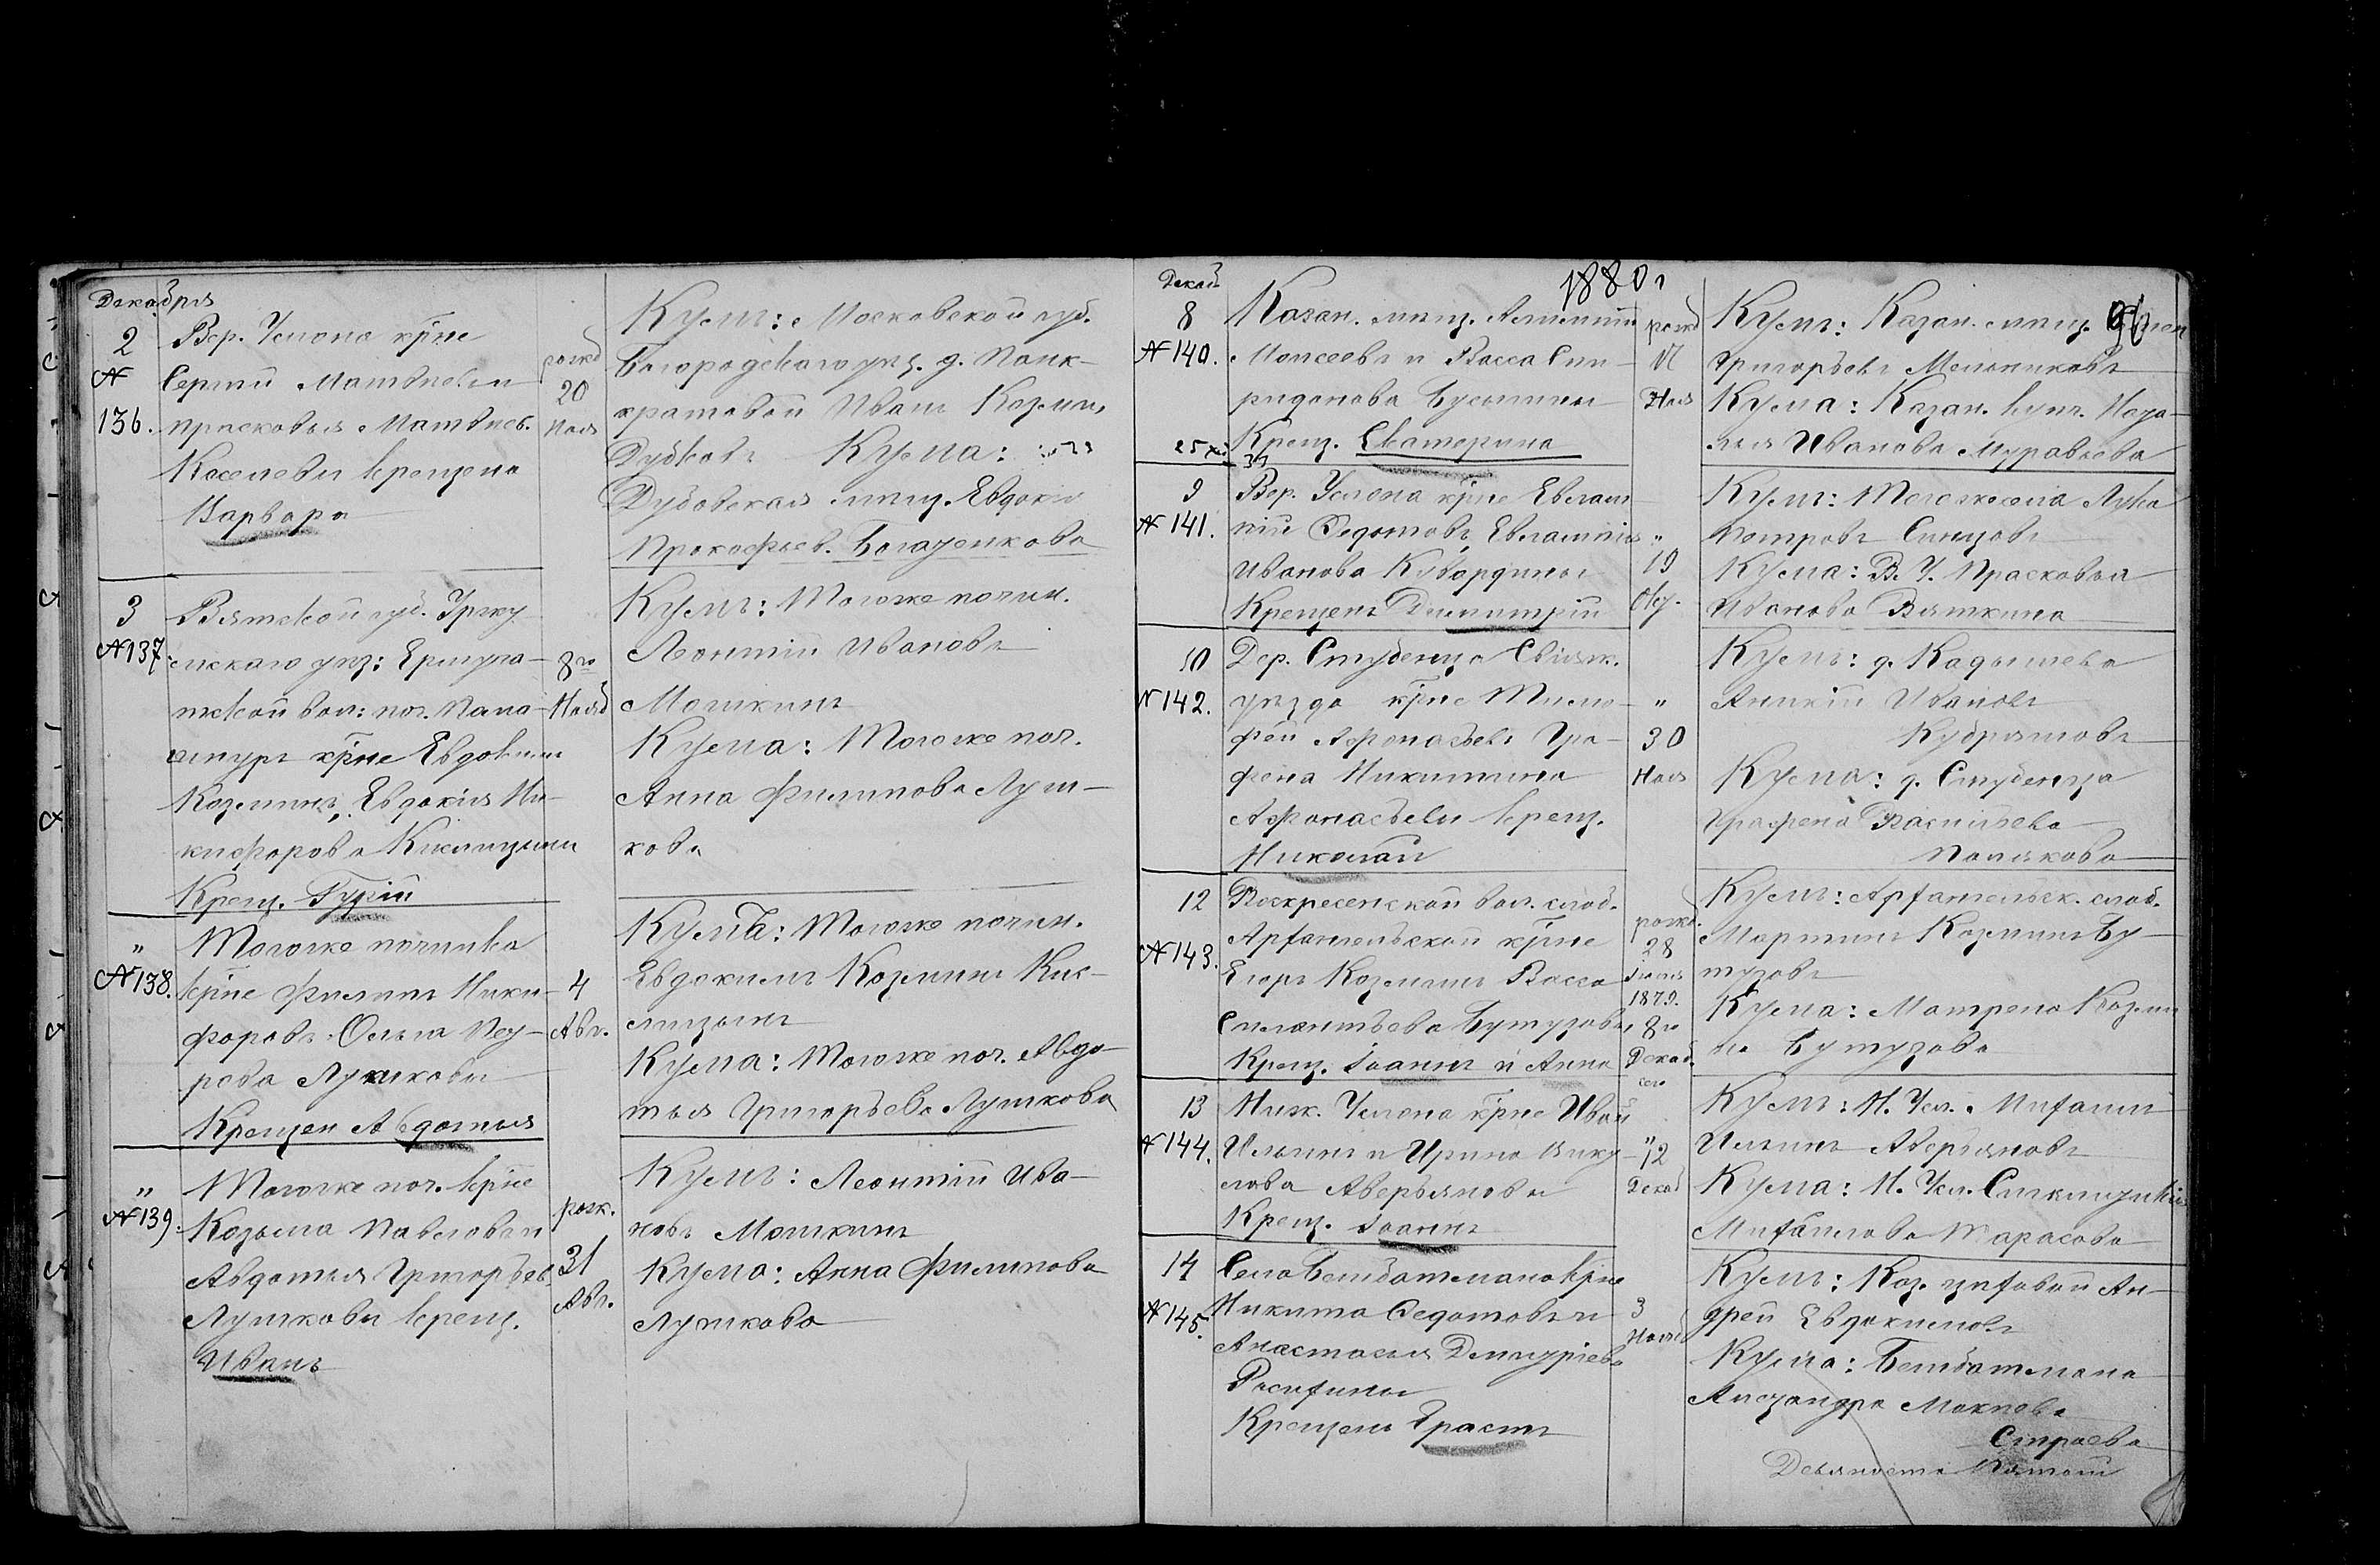 Декабря
2
№
136.
Вер. Услона крне
Сергий Матвиевъ и
Прасковья Матвиев.
Киселевы крещена
Варвара
рожд
20
Ноя
Кумъ: Московской губ.
Богородскаго уѣз. д. Панк-
кратовой Иванъ Козмин.
Дубковъ Кума:
Дубовская мѣщ. Евдокия
Прокофьев. Богаченкова
3
№137.
Вятской губ. Уржу
мскаго уѣз: Ермучa-
шской вол: поч.
крне Евдоким
Козминъ, Евдокія Ни-
кифорова Кислицыны
Крещ. Гурій
8го
Нояб
Кумъ: Тогоже почин.
Леонтій Ивановъ
Мошкинъ
Кума: Тогоже поч.
Анна Филипова Луш-
кова
"
№138.
Тогоже починка
крне Филипъ Ники-
форовъ Ольга
Лушковы
Крещен Авдотья
4
Авг.
Кумъ: Тогоже почин.
Евдокимъ Козминъ Кис-
лицынъ
Кума: Тогоже поч. Авдо-
тья Григорьева Лушкова
"
№139.
Тогоже поч. крне
Козьма Павловъ и
Авдотья Григорьев.
Лушковы крещ.
Иванъ
рож.
31
Авг.
Кумъ: Леонтій Ива-
новъ Мошкинъ
Кума: Анна Филипова
Лушкова
1880г
Декаб
8
№140.
Казан. мѣщ.
Моисеевъ и Васса Спи-
ридонова Бусыгины
Крещ. Екатерина
рожд
Ноя
Кумъ: Казан. мѣщ.
Григорьевъ Мельниковъ
Кума: Казан. купч.
Иванова Муравьева
9
№141.
Вер. Услона крне Евлам
пій Федотовъ, Евлампія
Иванова Кувардины
Крещенъ Димитрій
"
19
Окт.
Кумъ: Тогоже села Лука
Петровъ Синцовъ
Кума: В. У. Прасковья
Иванова Вяткина
10
№142.
Дер. Студенца Свіяж.
уѣзда крне Тимо-
фей Афонасьевъ Гра-
фена Никитина
Афонасьевы крещ.
Николай
"
30
Ноя
Кумъ: д. Кадышева
Аникій Ивановъ
Кудряшовъ
Кума: д. Студенца
Графена Васильева
Полякова
12
№143.
Воскресенской вол. слоб.
Архангельской крне
Егоръ Козминъ Васса
Силантьева Бутузовы
Крещ. Іоаннъ и Анна
рожд.
28
Іюля
1879.
8го
Декаб.
сего
Кумъ: Архангельск. слоб.
Мартинъ Козминъ Бу-
тузовъ
Кума: Матрена Козми
на Бутузова
13
№144.
Ниж. Услона крне Иван
Ильинъ и Ирина Вику-
лова Аверьяновы
Крещ. Іоаннъ
"
12
Декаб
Кумъ: Н. Усл. Михаилъ
Ильинъ Аверьяновъ
Кума: Н. Усл. Сигклитикія
Михаилова Тарасова
14
№145.
Села Бешбатмана крне
Никита Федотовъ и
Анастасья Дмитріева
Расихины
Крещенъ Ерастъ
3
Нояб
Кумъ: Каз. цеховой Ан-
дрей Евдокимовъ
Кума: Бешбатмана
Александра
Страева
Девяносто Пятый